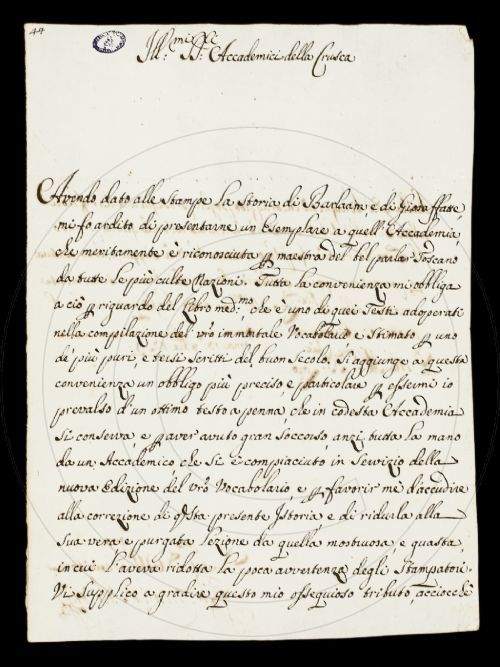 44
Ill:mi SS:ri Accademici della Crusca
Avendo dato alle Stampe la Storia di Barlaam, e di Giosaffatte,
mi fo ardito di presentarne un Esemplare a quell'Accademia,
che meritamente è riconosciuta p maestra del bel parlar Toscano
da tutte le più culte Nazioni. Tutta la convenienza mi obbliga
a ciò p riguardo del Libro med:mo, che è uno di quei Testi adoperati
nella compilazione del vrõ immortale Vocabolario e stimato p uno
de' più puri, e tersi scritti del buon Secolo. Si aggiunge a questa
convenienza un obbligo più preciso e particolare p essermi io
prevalso d'un ottimo testo a penna, che in codesta Accademia
si conserva, e p aver avuto gran soccorso, anzi tutta la mano
da un Accademico che si è compiaciuto in servizio della
nuova Edizione del vrõ Vocabolario, e p favorir me d'accudire
alla correzione di qsta presente Istoria, e di ridurla alla
sua vera e purgata lezione da quella mostruosa, e guasta,
in cui l'aveva ridotta la poca avvertenza degli Stampatori.
Vi supplico a gradire questo mio ossequioso tributo, acciocchè